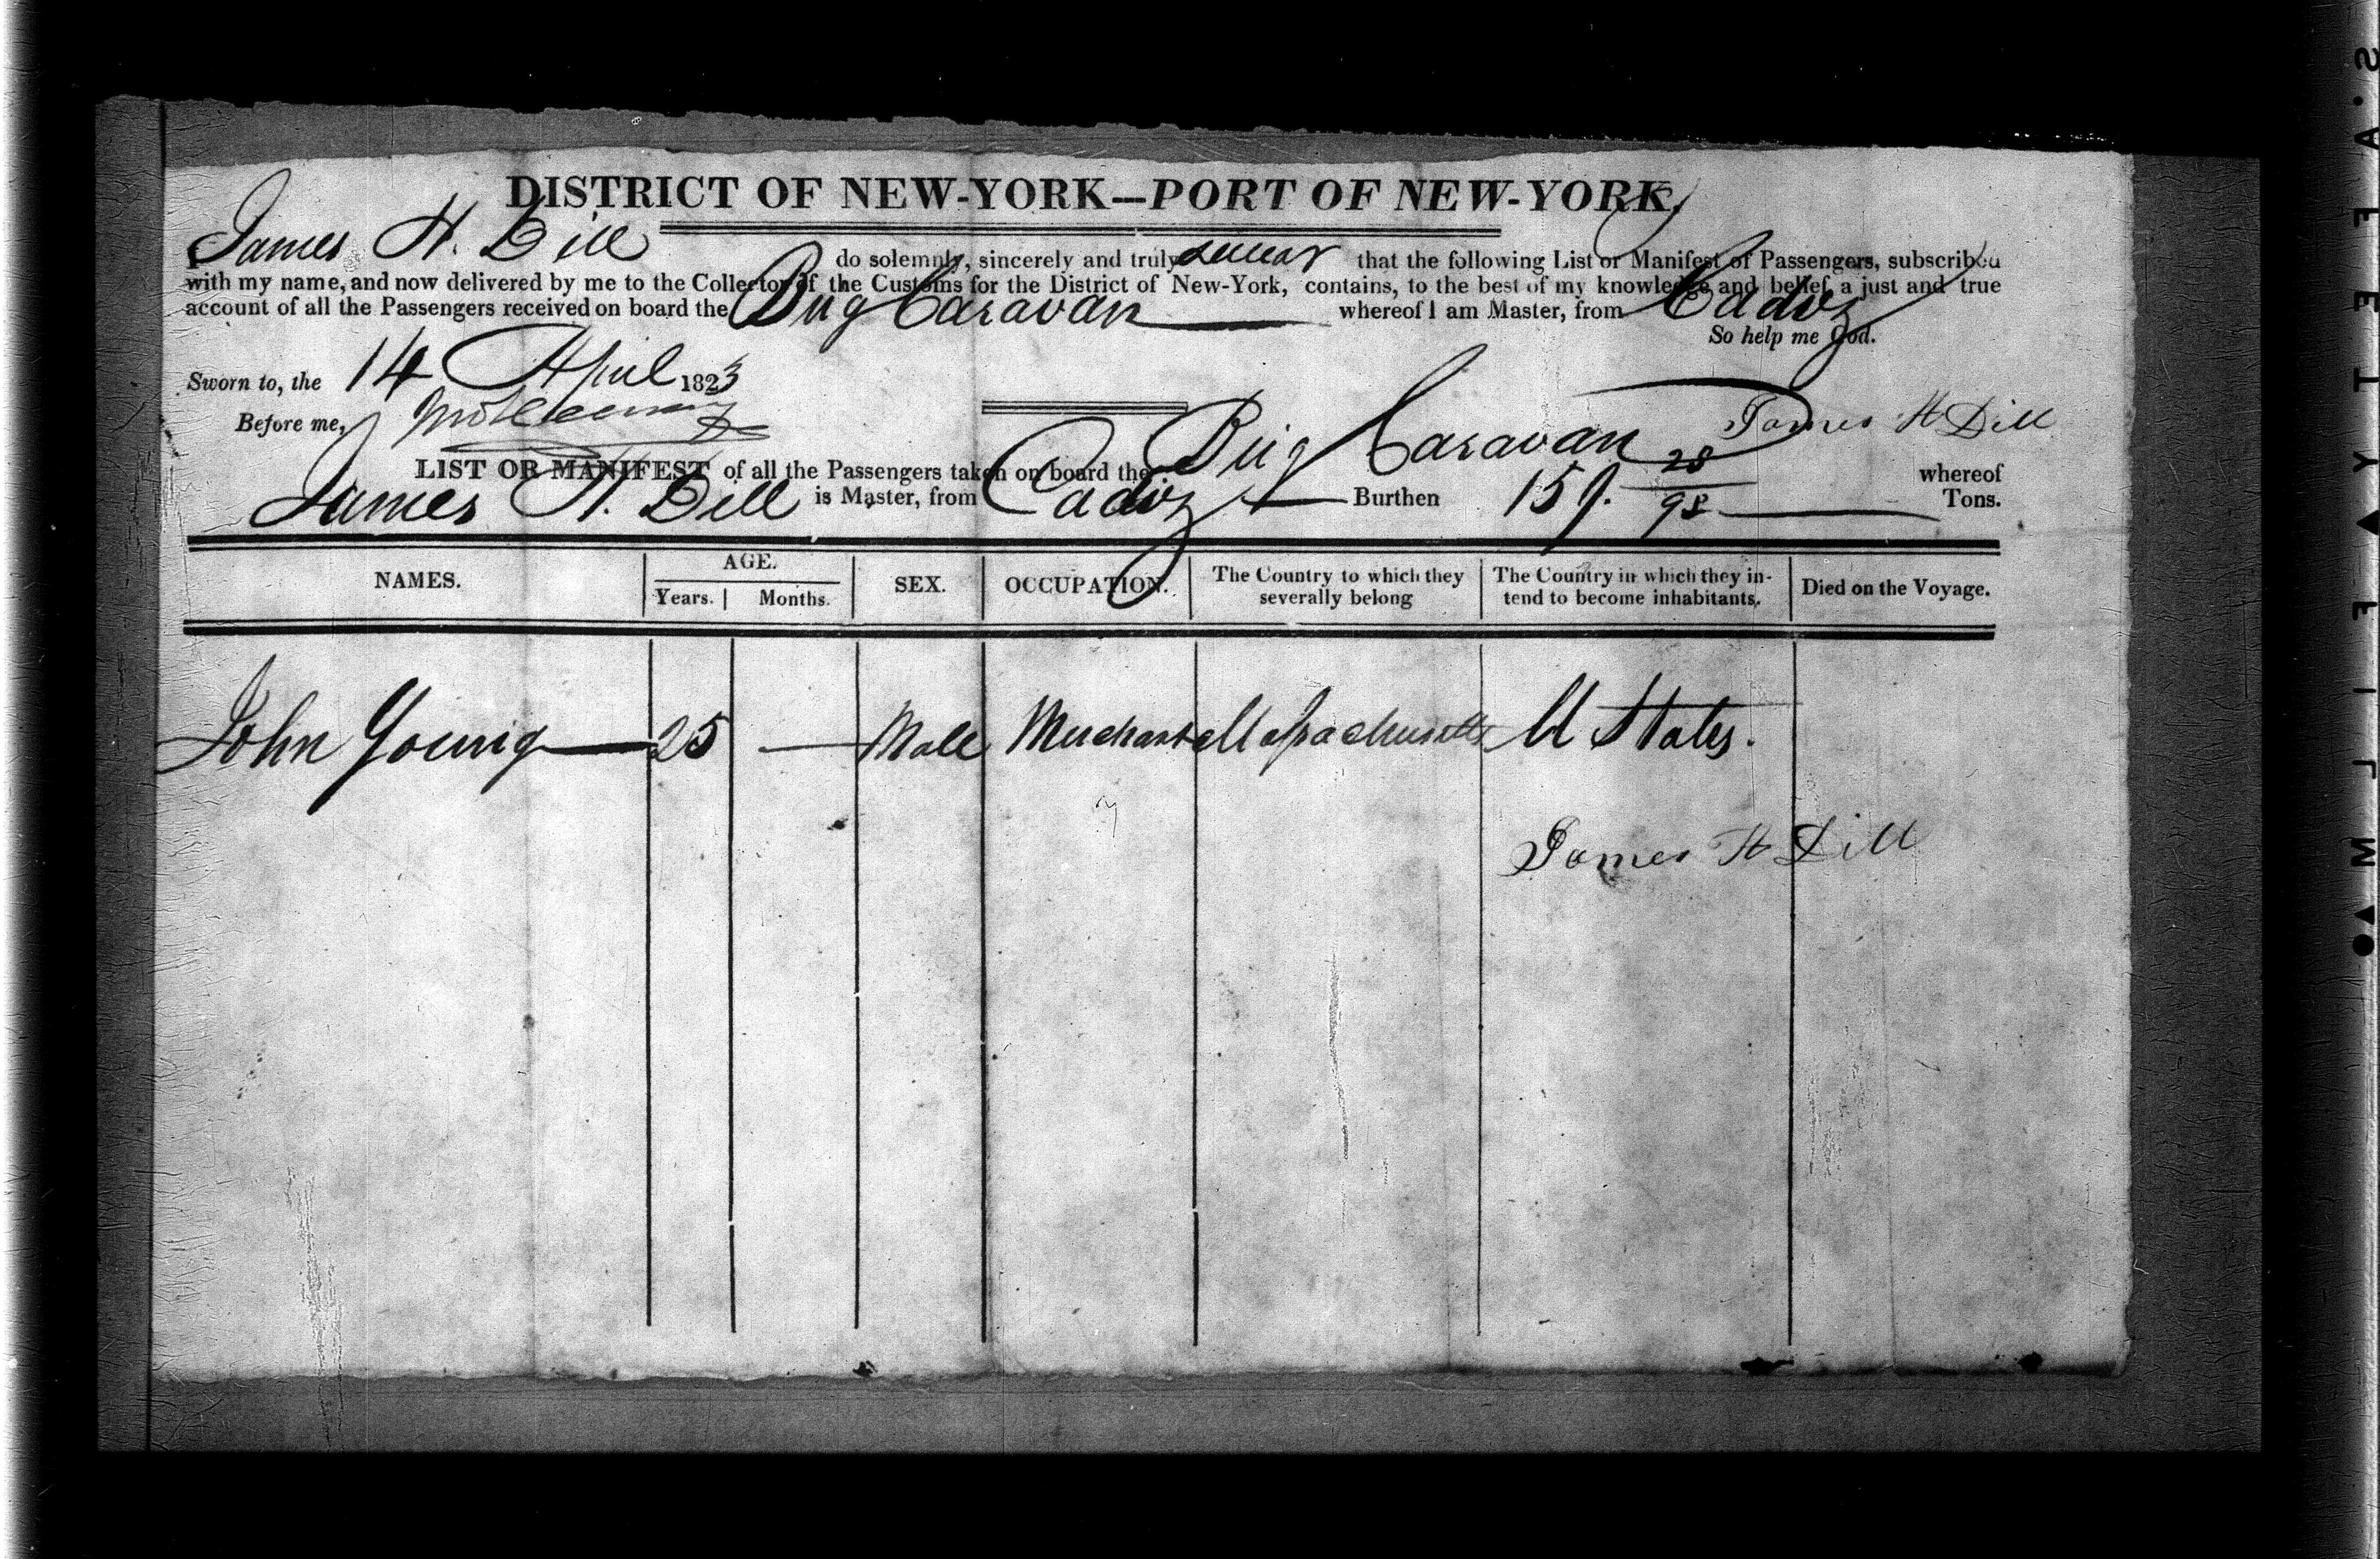 DISTRICT OF NEW-YORK—PORT OF NEW-YORK.
I James H. Dill do solemnly, sincerely and truly swear that the following List or Manifest of Passengers, subscribed
with my name, and now delivered by me to the Collector of the Customs for the District of New-York, contains, to the best of my knowledge and belief, a just and true
account of all the Passengers received on board the Brig Caravan whereof I am Master, from Cadiz
So help me God.
Sworn to, the 14 April 1823
Before me,
James H Dill
LIST OR MANIFEST of all the Passengers taken on board the Brig Caravan whereof
James H. Dill is Master, from Cadiz Burthen 159. 28/95 Tons.
NAMES. AGE. Years. Months. SEX. OCCUPATION. The Country to which they severally belong The Country in which they intend to become inhabitants. Died on the Voyage.
John Young — 25 — Male Merchant Massachusetts U States.
James H Dill